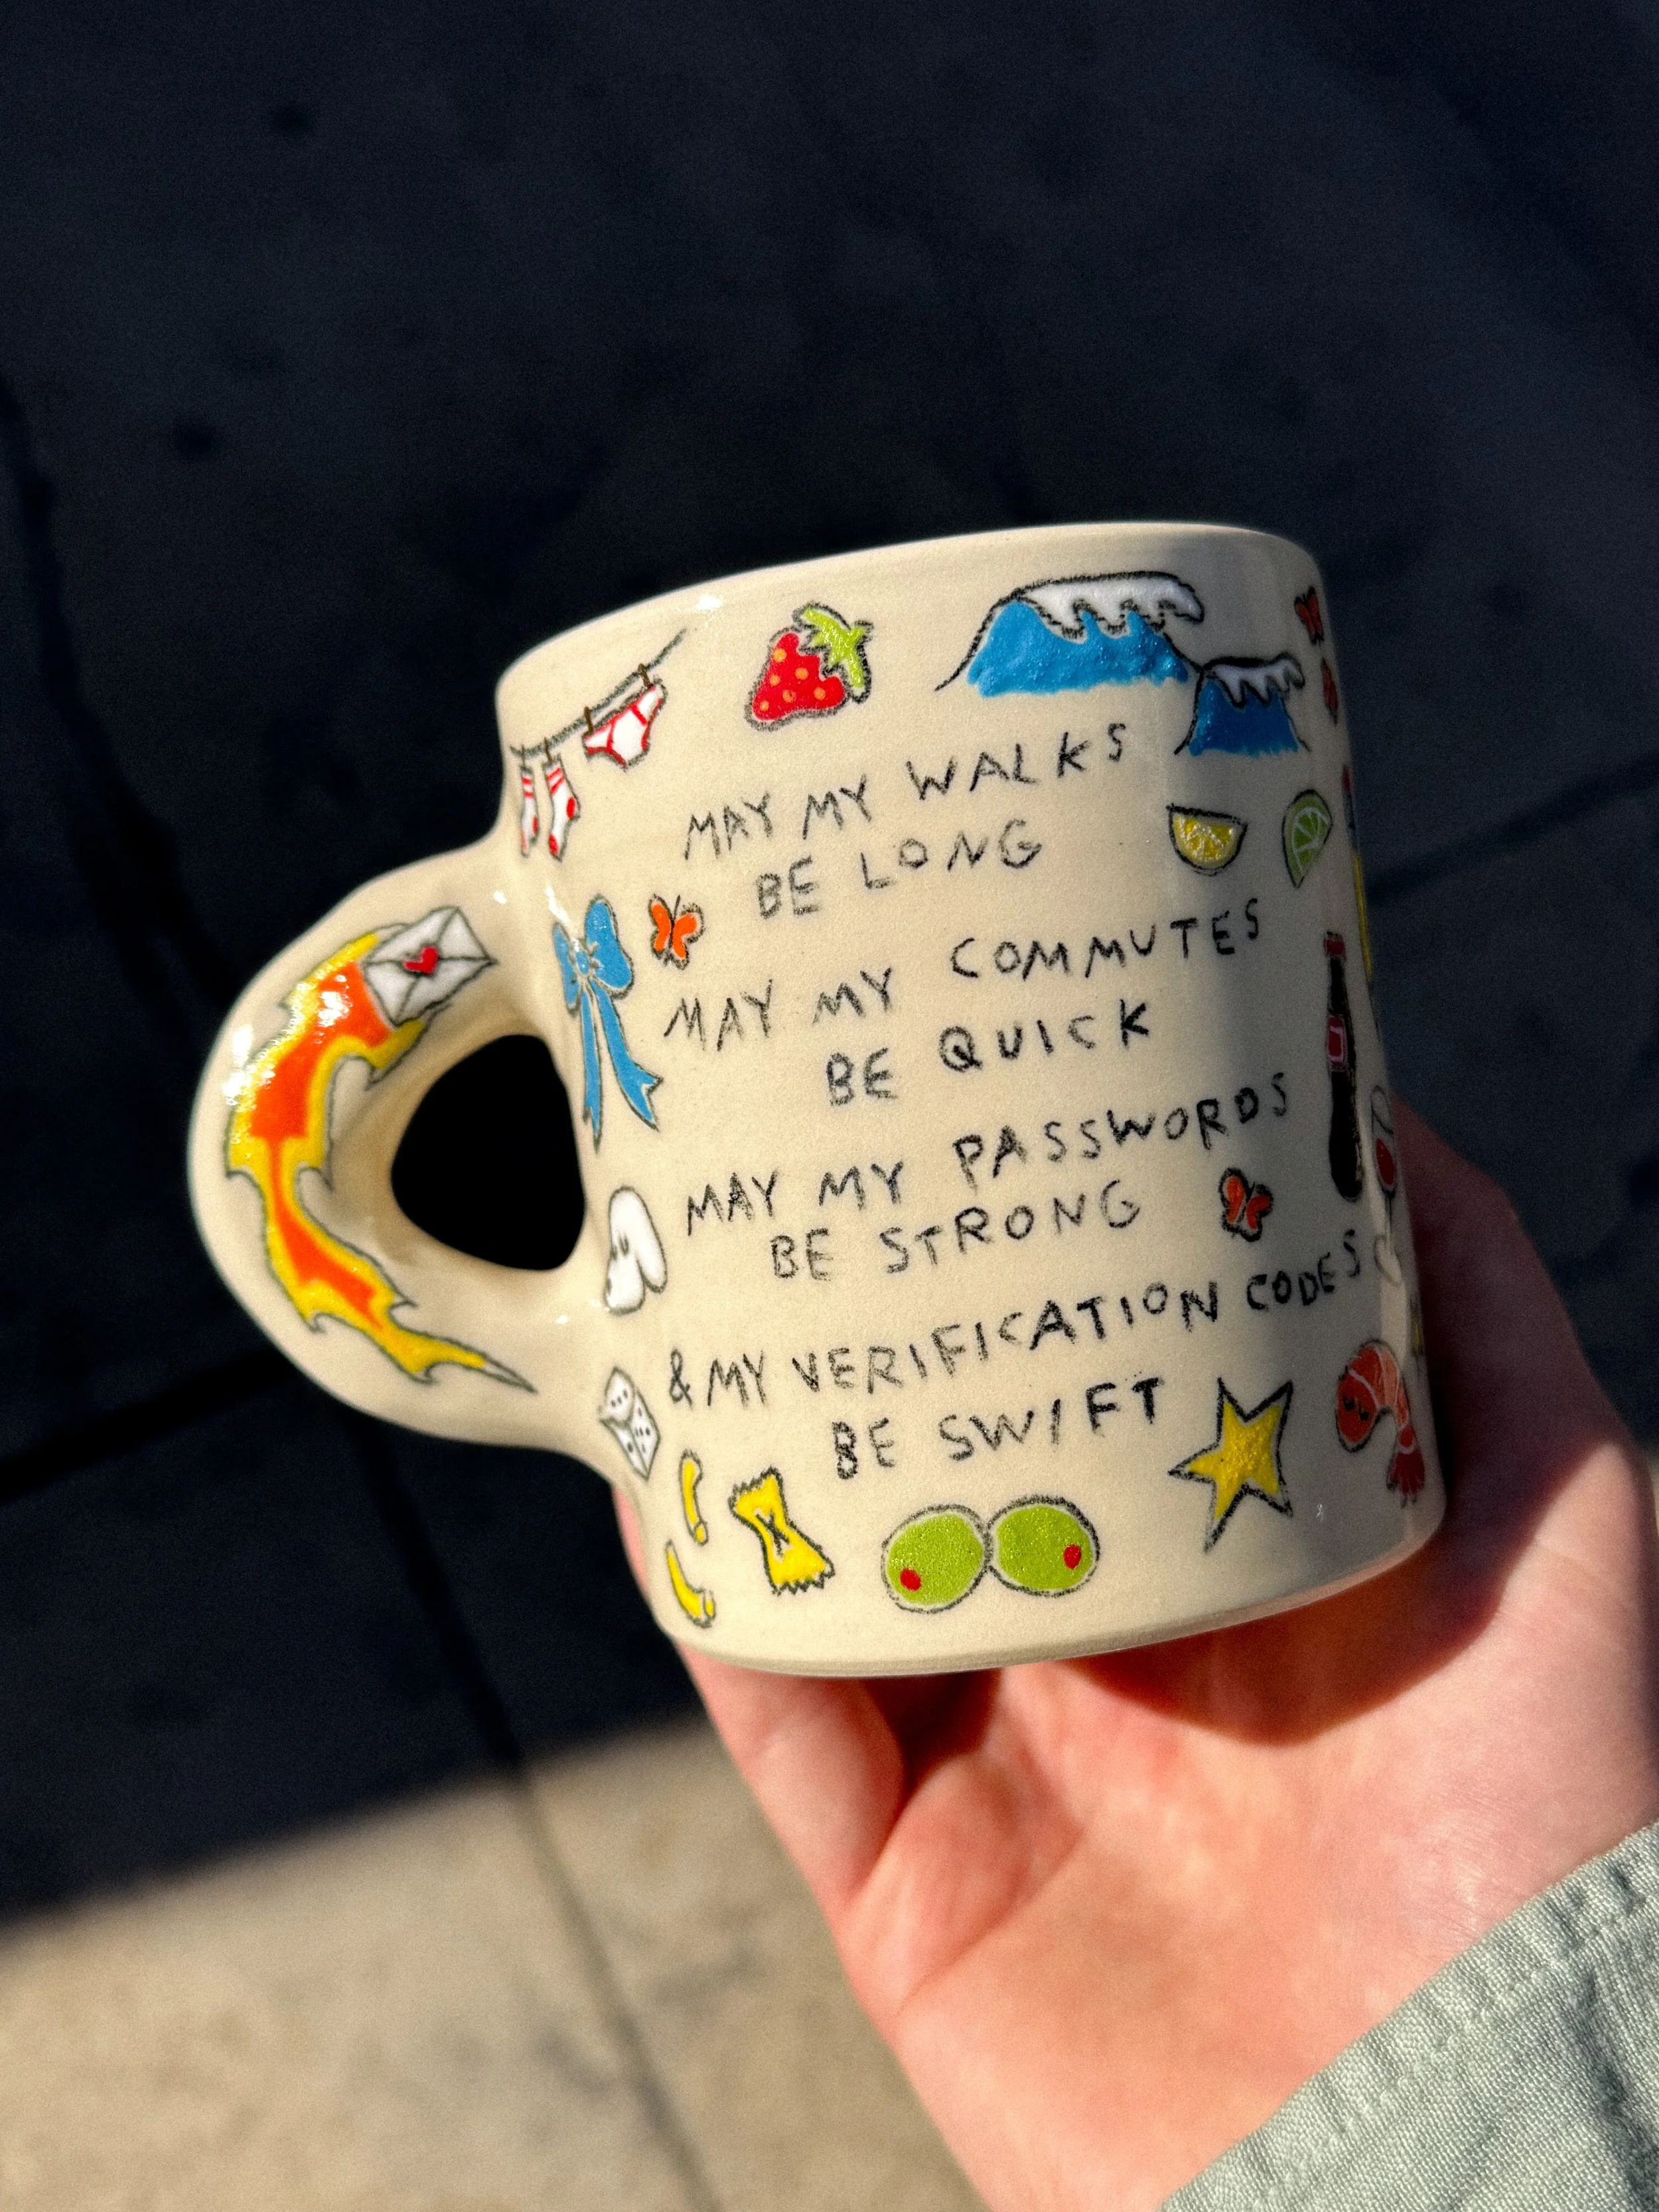 MAY MY WALKS
BE LONG
MAY MY COMMUTES
BE QUICK
MAY MY PASSWORDS
BE STRONG
& MY VERIFICATION CODES
BE SWIFT